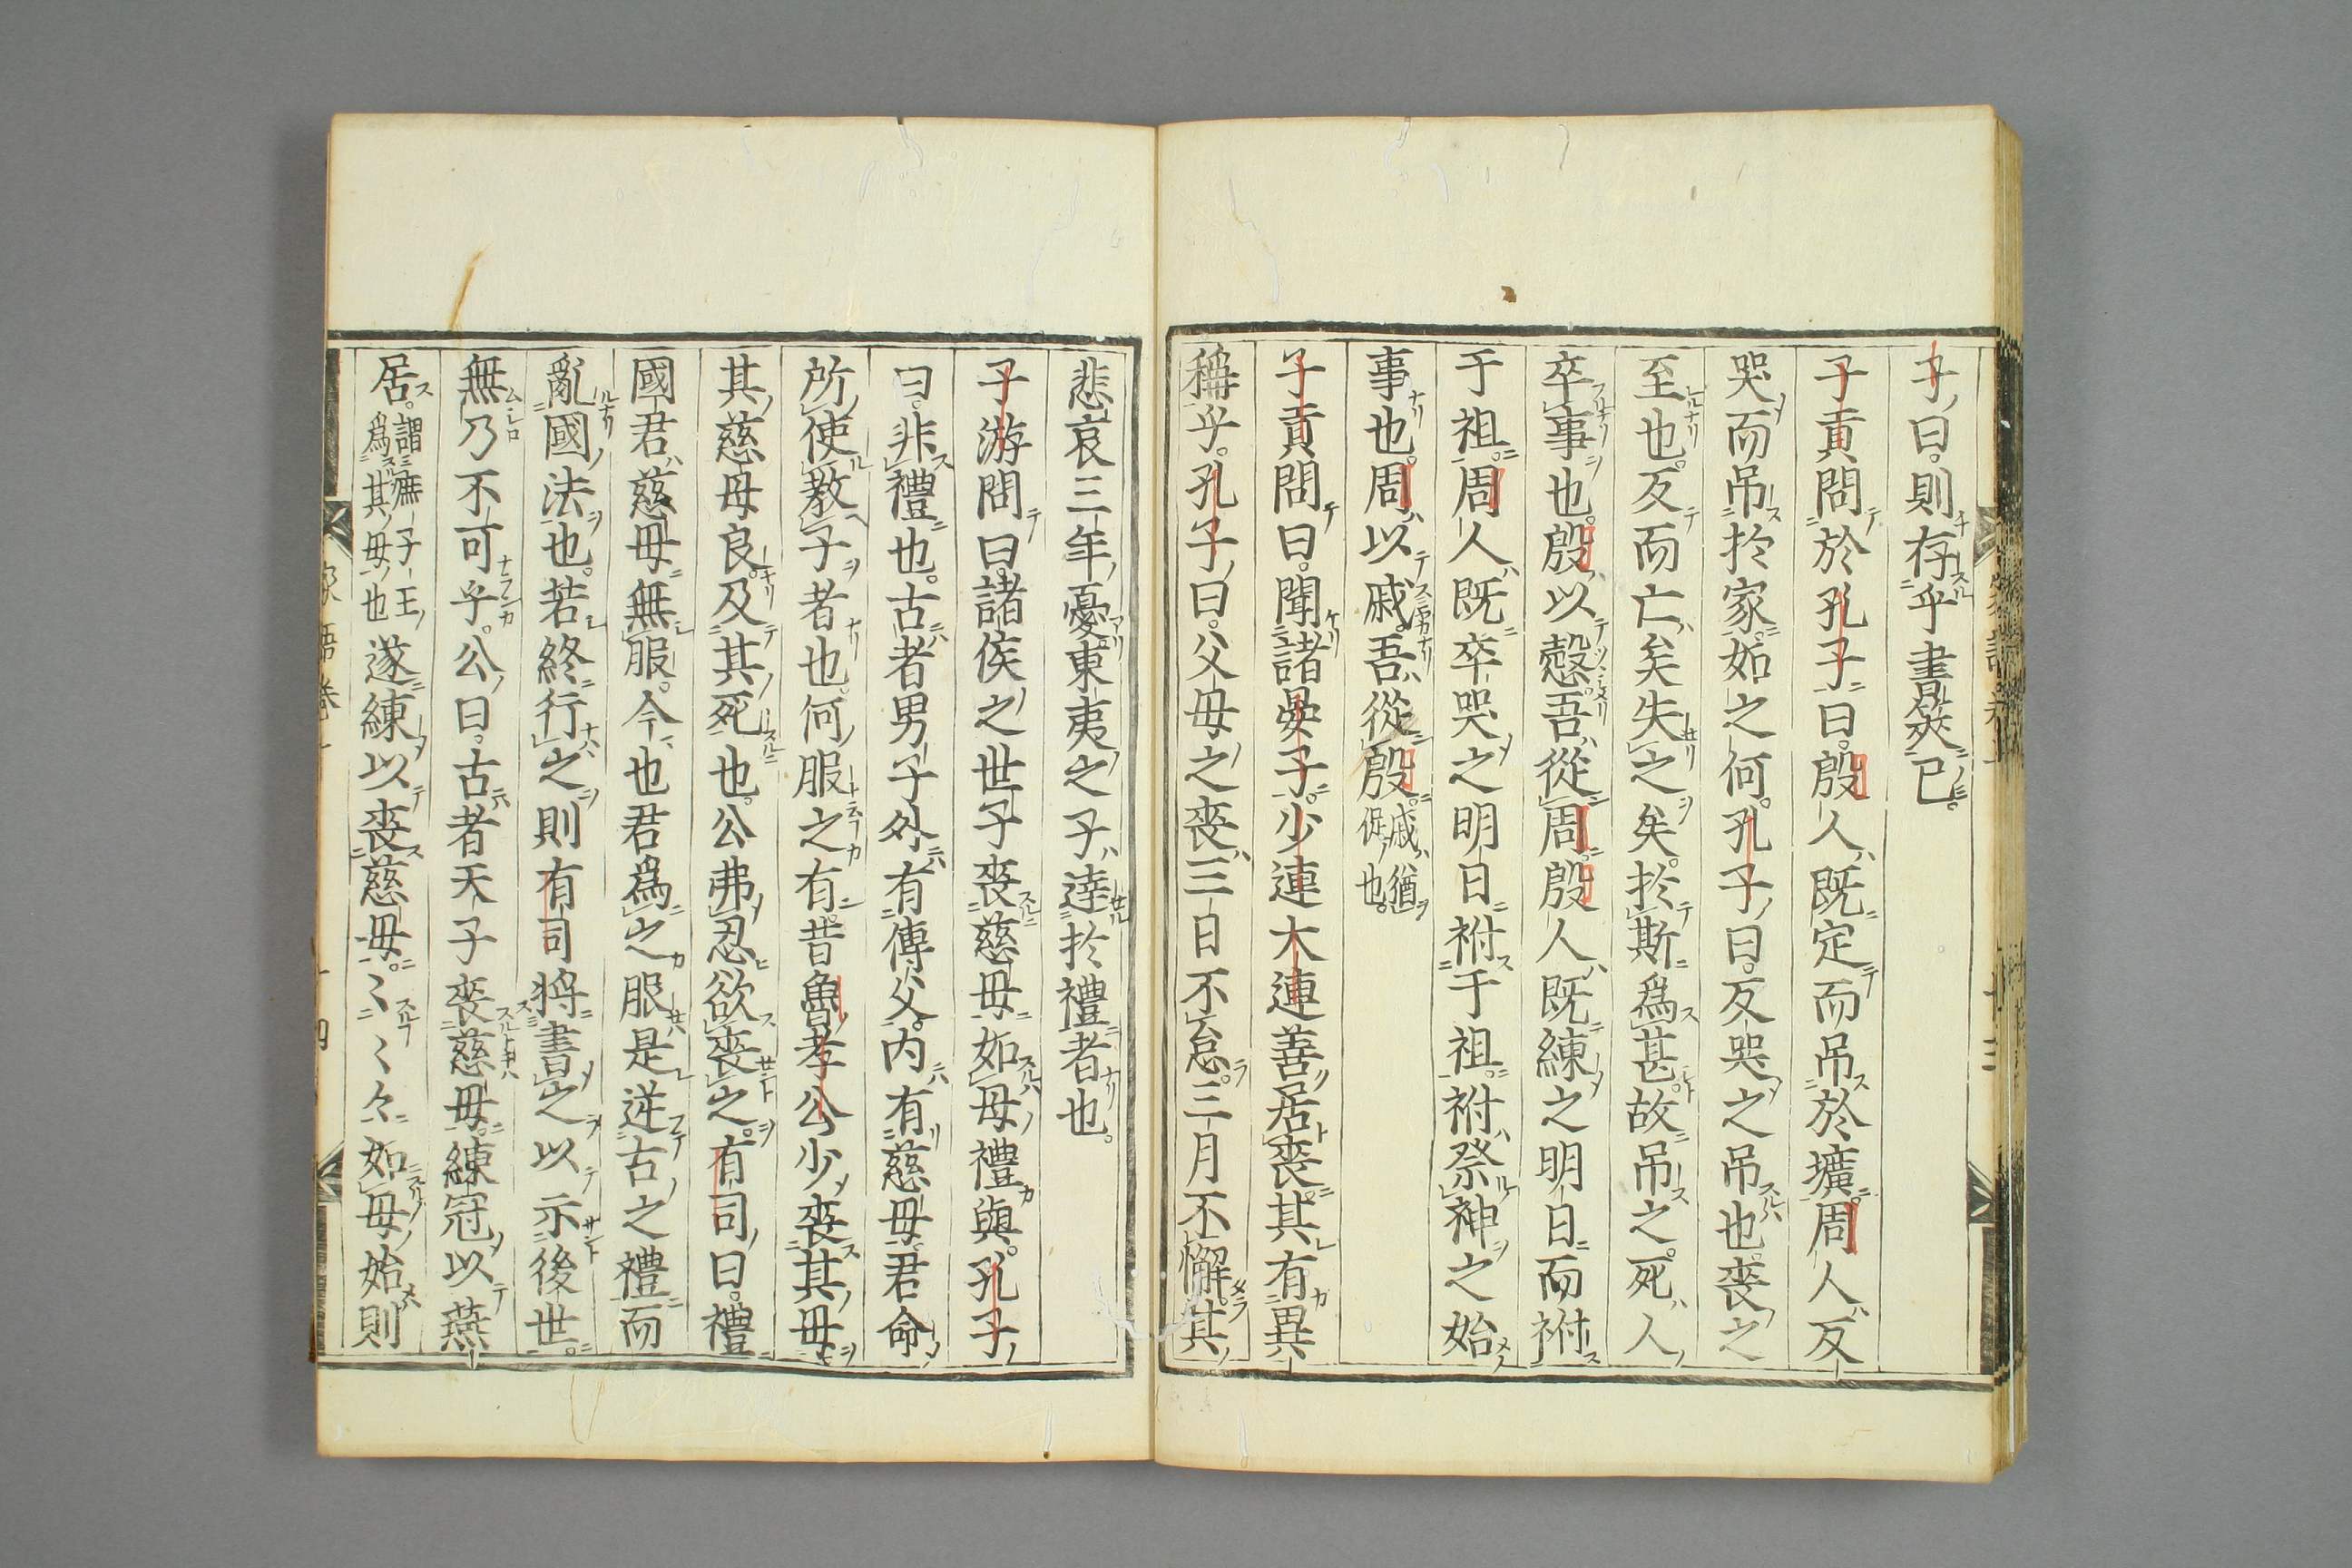 子曰則存乎書筴已
子貢問於孔子曰殷人既定而吊於壙周人反
哭而吊於家如之何孔子曰反哭之吊也喪之
至也反而亡矣失之矣於斯爲甚故吊之死人
卒事也殷以愨吾從周殷人既練之明日而祔
于祖周人既卒哭之明日祔于祖祔祭神之始
事也周以戚吾從殷戚猶
促也
子貢問曰聞諸晏子少連大連善居喪其有異
稱乎孔子曰父母之喪三日不怠三月不懈其
悲哀三年憂東夷之子達於禮者也
子游問曰諸侯之世子喪慈母如母禮與孔子
曰非禮也古者男子外有傅父内有慈母君命
所使教子者也何服之有昔魯孝公少喪其母
其慈母良及其死也公弗忍欲喪之有司曰禮
國君慈母無服今也君爲之服是逆古之禮而
亂國法也若終行之則有司将書之以示後世
無乃不可乎公曰古者天子喪慈母練冠以燕
居謂無子王
爲其母也遂練以喪慈母〻〻々如母始則